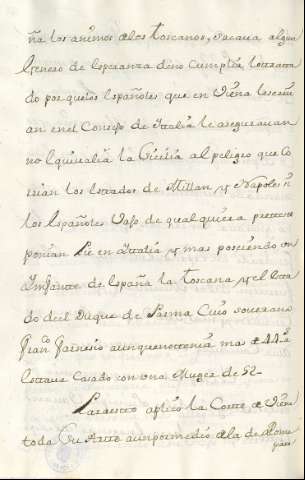 ña los animos a los toscanos, sacaua algun
Genero de esperanza deno cumplir lotratta
do por quelos españoles que en Viena
an enel Consejo de Ittalia le asegurauan
no equiualia la Sicilia al peligro que Co
rrian los estados de Millan y Napoles si
los españoles vajo de qualquiera pretexto
ponian Pie en Ittalia, y mas poseiendo un
Infante de españa la Toscana, y el esta
do deel Duque de Parma Cuio soverano
Fran.co Farnesio aunque no tenia mas de 44 a.s
estaua Casado con una Muger de 52-
Para esto aplicó la Corte de Viena
toda su Arte aunpormedio dela de Roma